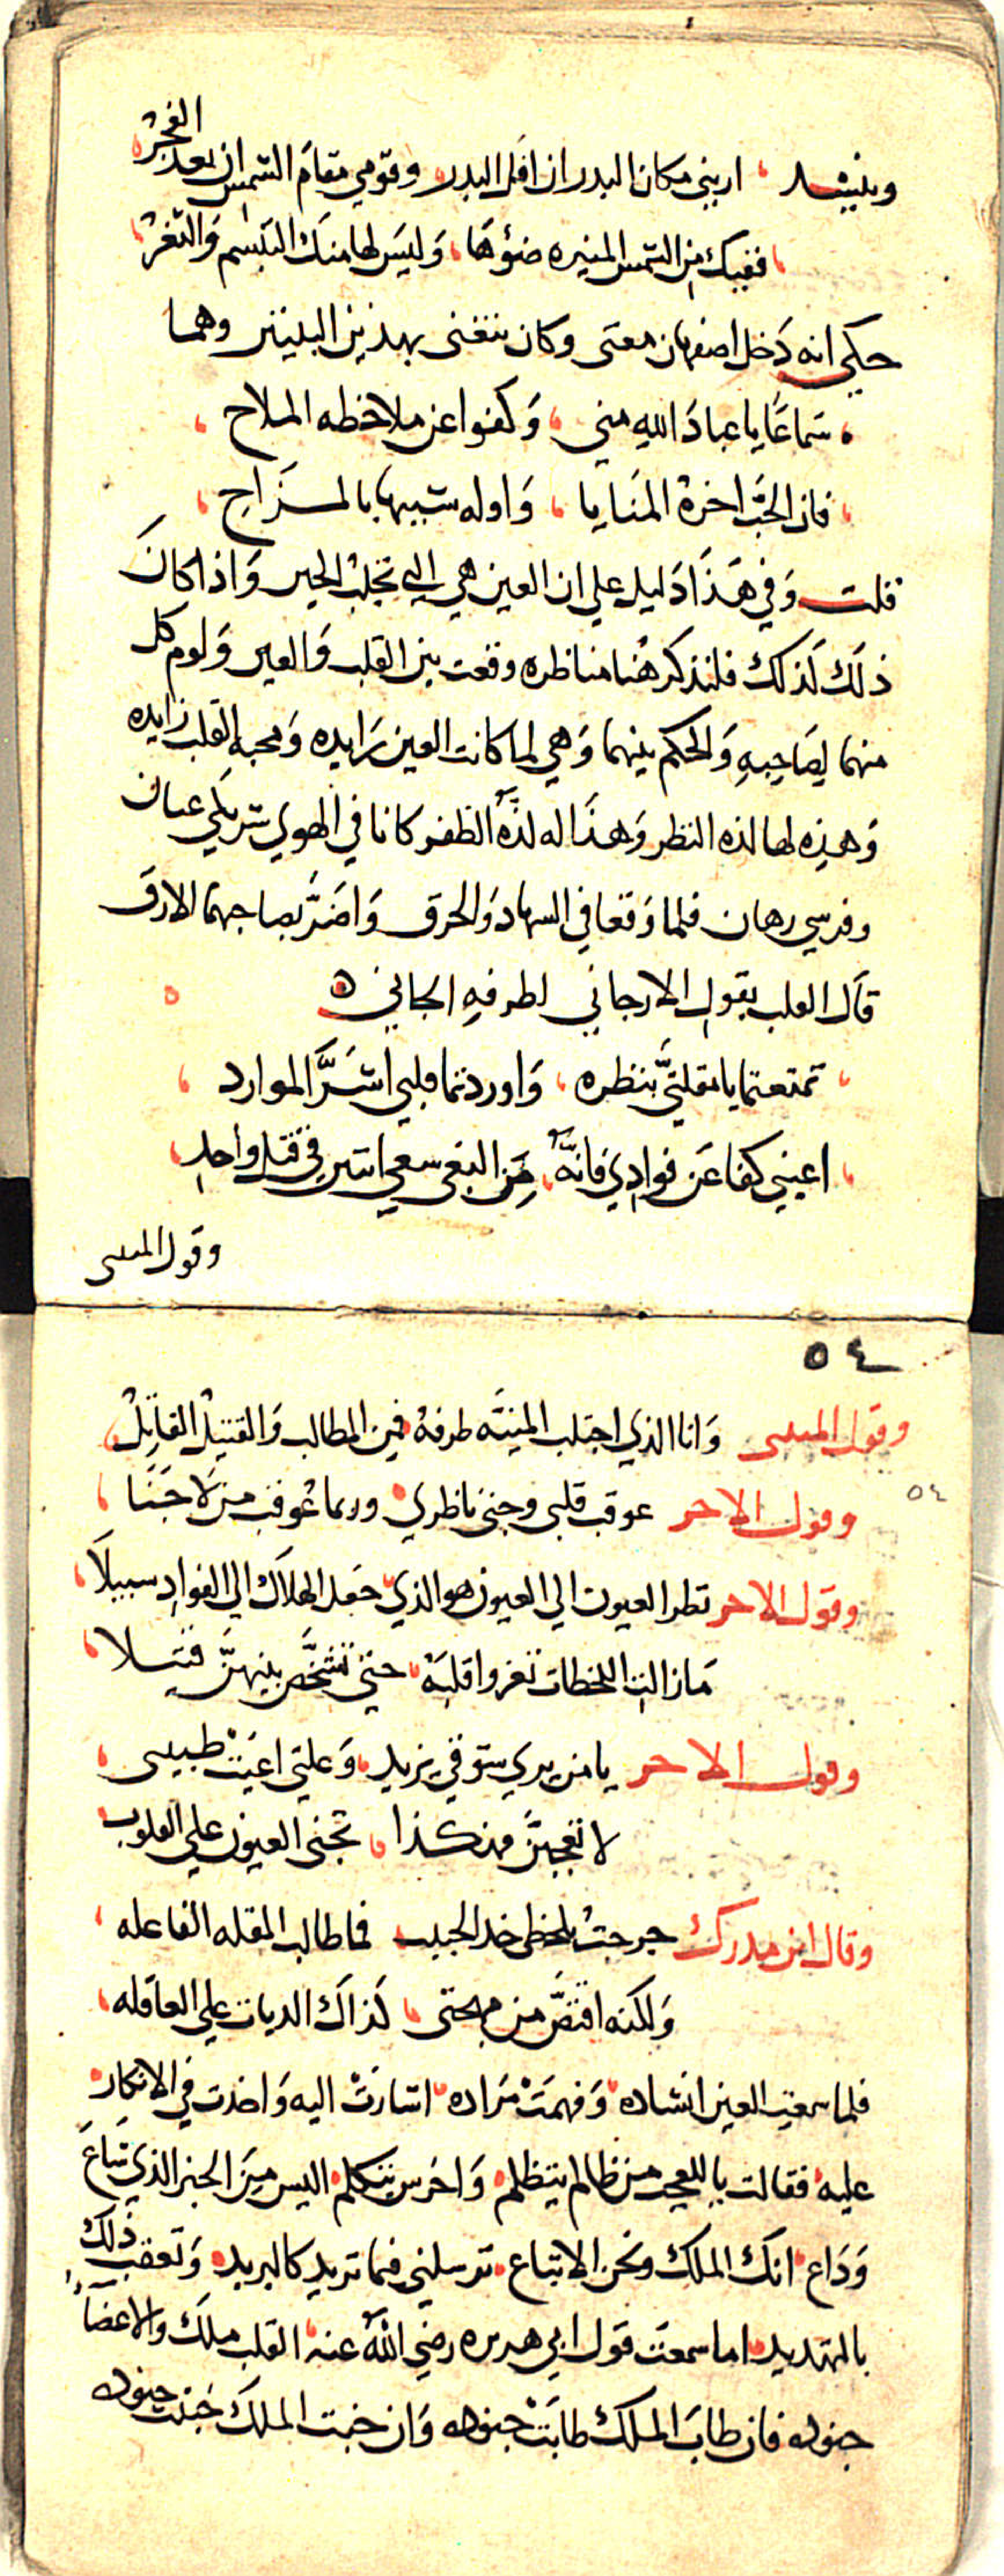 وينشد اريني مكان البدر ان افل البدر وقومي مقام الشمس ان بعد الفجر
ففيك من الشمس المنيره ضوها وليس لها منك التبسم والثغر
حكي انه دخل اصفهان مغنى وكان يتغنى بهذين البيتين وهما
سماعا يا عباد الله مني وكفوا عن ملاحظه الملاح
فان الحب اخره المنايا واوله شبيها بالمزاح
قلت وفي هذا دليل علي ان العين هي التي تجلب الحين واذا كان
ذلك لذلك فلنذكر هنا مناظره وقعت بين القلب والعين ولوم كل
منهما لصاحبه والحكم بينهما وهي لما كانت العين رايده ومحبه القلب زايده
وهذه لها لذه النظر وهذا له لذة الظفر كانا في الهوي شريكي عنان
وفرسي رهان فلما وقعا في السهاد والحرق واضر بصاحبهما الارق
قال القلب يقول الارجاني لطرفه الجاني
تمتعتما يا مقلتي بنظره واوردتما قلبي اشر الموارد
اعيني كفا عن فوادي فانه من البغى سعي اثنين في قتل واحد
وقول المتنبى
٥٤
وقول المتنبى وانا الذي اجتلب المنية طرفه فمن المطالب والقتيل القاتل
٥٤
وقول الاخر عوقب قلبى وجنى ناظري وربما عوقب من لا جنا
وقول الاخر نظر العيون الي العيون هو الذي جعل الهلاك الي الفواد سبيلا
ما زالت اللحظات تغزوا قلبه حتى تشحط بينهن قتيلا
وقول الاخر يا من يري شوقي يزيد وعلتي اعيت طبيبى
لا تعجبن فهكذا تجنى العيون علي القلوب
وقال ابن مدرك جرحت بلحظى خد الحبيب فما طالب المقله الفاعله
ولكنه اقتص من مهجتى كذاك الديات علي العاقله
فلما سمعت العين انشاده وفهمت مراده اشارت اليه واخذت في الانكار
عليه فقالت يا للعجب من ظالم يتظلم واخرس يتكلم اليس من الخبر الذي شاع
وذاع انك الملك ونحن الاتباع ترسلني فيما تريد كالبريد وتعقب ذلك
بالتهديد اما سمعت قول ابي هريره رضي الله عنه القلب ملك والاعضا
جنوده فان طاب الملك طابت جنوده وان خبث الملك خبثت جنوده